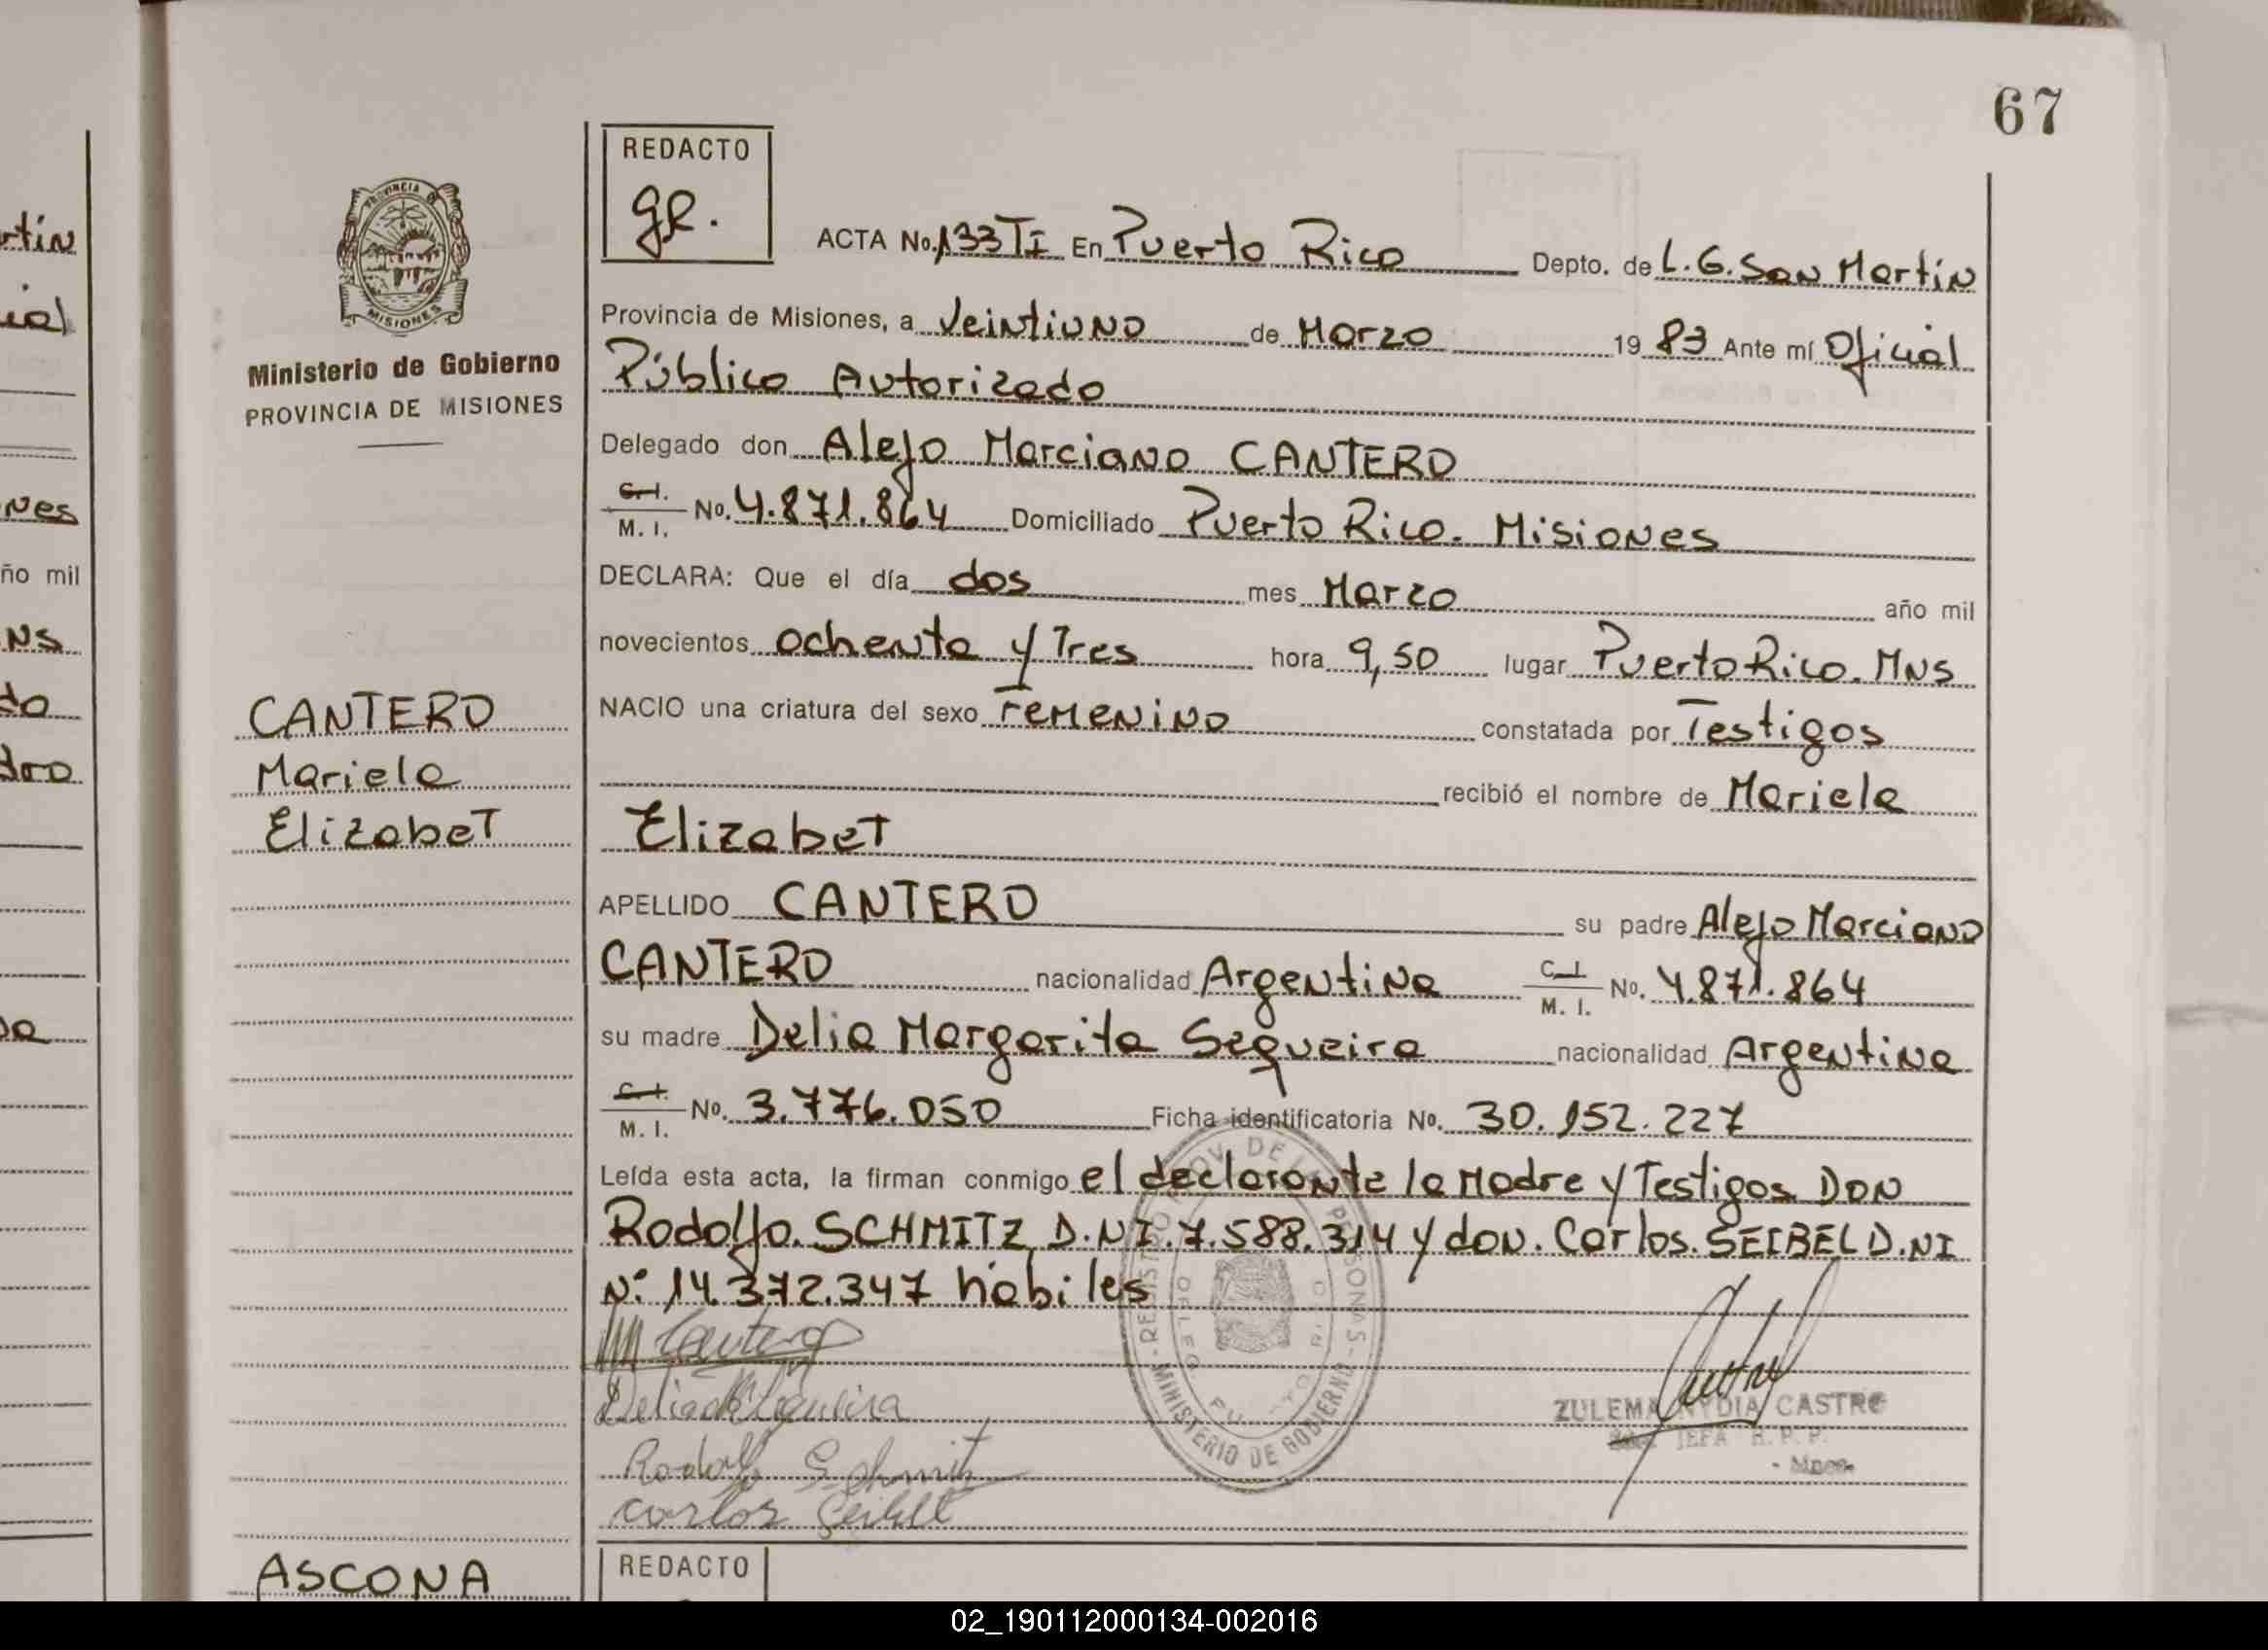 67
REDACTO
gr.
PROVINCIA DE
MISIONES
Ministerio de Gobierno
PROVINCIA DE MISIONES
ACTA No. 133 TI En Puerto Rico Depto. de L. G. San Martín
Provincia de Misiones, a Veintiuno de Marzo 19 83 Ante mí Oficial
Público Autorizado
Delegado don Alejo Marciano CANTERO
C. I. M. I. No. 4.871.864 Domiciliado Puerto Rico. Misiones
DECLARA: Que el día dos mes Marzo año mil
novecientos ochenta y Tres hora 9,50 lugar Puerto Rico. Mns
NACIO una criatura del sexo Femenino constatada por Testigos
recibió el nombre de Mariela
Elizabet
APELLIDO CANTERO su padre Alejo Marciano
CANTERO nacionalidad Argentina C. I. M. I. No. 4.871.864
su madre Delia Margarita Sequeira nacionalidad Argentina
C. I. M. I. No. 3.776.050 Ficha identificatoria No. 30.152.227
Leída esta acta, la firman conmigo el declarante la Madre y Testigos DON
Rodolfo. SCHMITZ D.NI. 7.588.314 y don. Carlos. SEIBEL D.NI
N: 14.372.347 hábiles
CANTERO
Mariela
Elizabet
Cantero
Delia de Sequeira
Rodolfo Schmitz
Carlos Seibel
MINISTERIO DE GOBIERNO
ZULEMA NYDIA CASTRO
JEFA R. P. P.
ASCONA
REDACTO
rtín
ial
nes
ño mil
ns
do
02_190112000134-002016